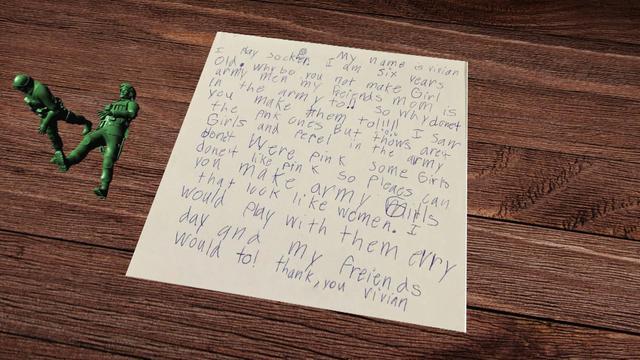 My name is vivian
I Play socker I am six years
old. Why do you not make Girl
army men my freinds mom is
in the army to!! so why donet
you make them to!!!! I saw
the pink ones but thows aren't
Girls and pepel in the army
donet Were pink some Girls
donet like pink so pleacs can
you make army Girls
that look like women. I
would play with them evry
day and my freiends
would to! thank, you vivian